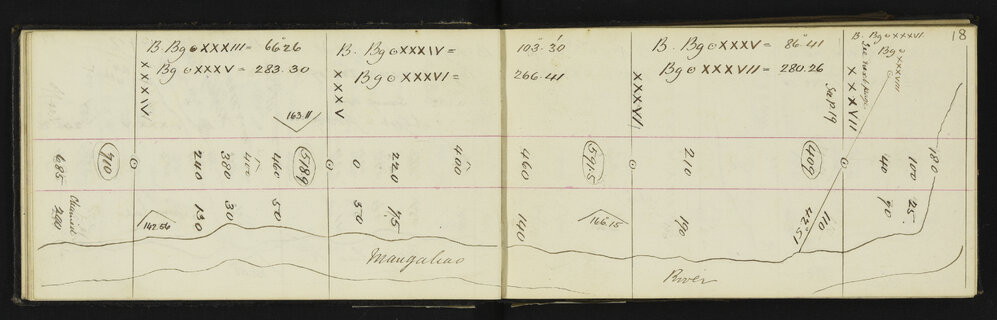 B. Bg ⊙ XXXIII = 66·26
Bg ⊙ XXXV = 283.30
XXXIV
163.11
B. Bg ⊙ XXXIV = 103·30
Bg ⊙ XXXVI = 266.41
XXXV
B. Bg ⊙ XXXV = 86·41
Bg ⊙ XXXVII = 280.26
XXXVI
See p 19
B. Bg ⊙ XXXVI
Bg ⊙ XXXVIII
See next page
XXXVII
18
685
910
240
380
400
460
5189
0
220
400
460
591.5
210
409
40
100
180
200
142.56
130
30
50
50
75
140
166.15
190
42°51
110
90
25
Mangahao
River